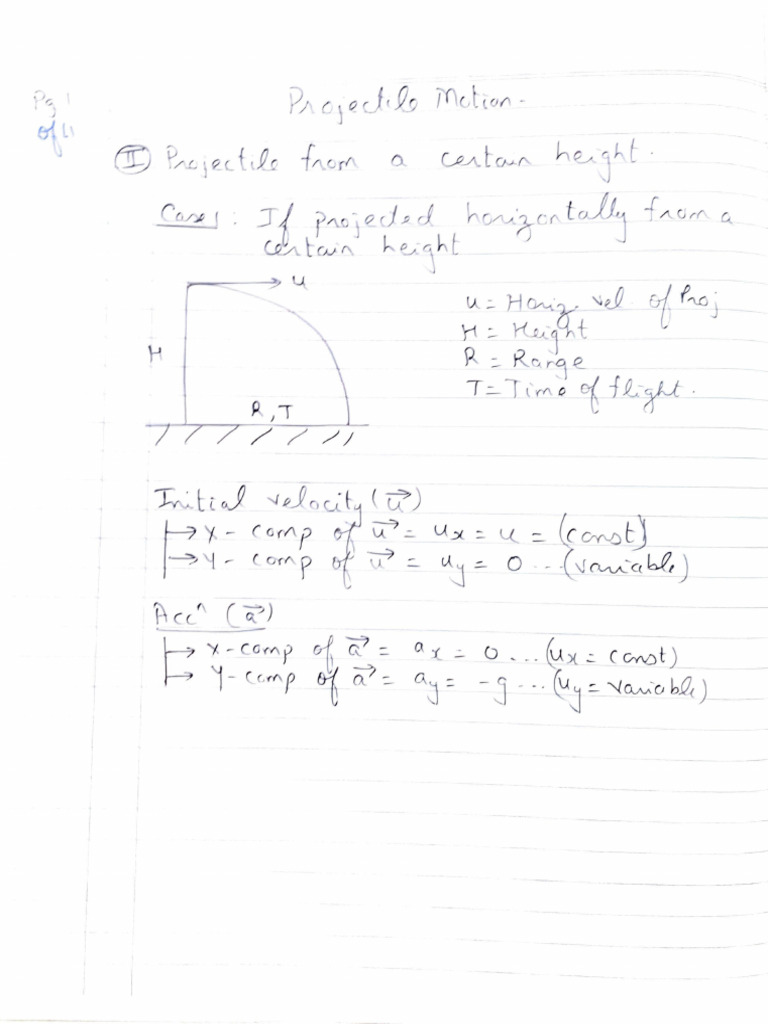 Pg 1
of 11
Projectile Motion.
II Projectile from a certain height.
Case 1 : If projected horizontally from a
certain height
u
H
R, T
u = Horiz. vel. of Proj
H = Height
R = Range
T = Time of flight.
Initial velocity (u⃗)
→ X - comp of u⃗ = ux = u = (const)
→ Y - comp of u⃗ = uy = 0 ...(variable)
Accⁿ (a⃗)
→ X-comp of a⃗ = ax = 0 ...(ux = const)
→ Y-comp of a⃗ = ay = -g ...(uy = variable)